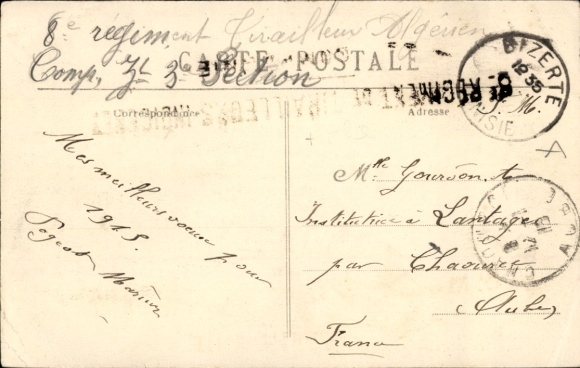 8e régiment Tirailleur Algérien
CARTE POSTALE
Comp. 3e Section
8e RÉGIMENT DE TIRAILLEURS
Correspondance
Adresse
BIZERTE
18 35
TUNISIE
Mes meilleurs voeux pour
1915.
Pogeot Marius
Mlle Gourdon t
Institutrice à Lantages
par Chaource
(Aube)
France